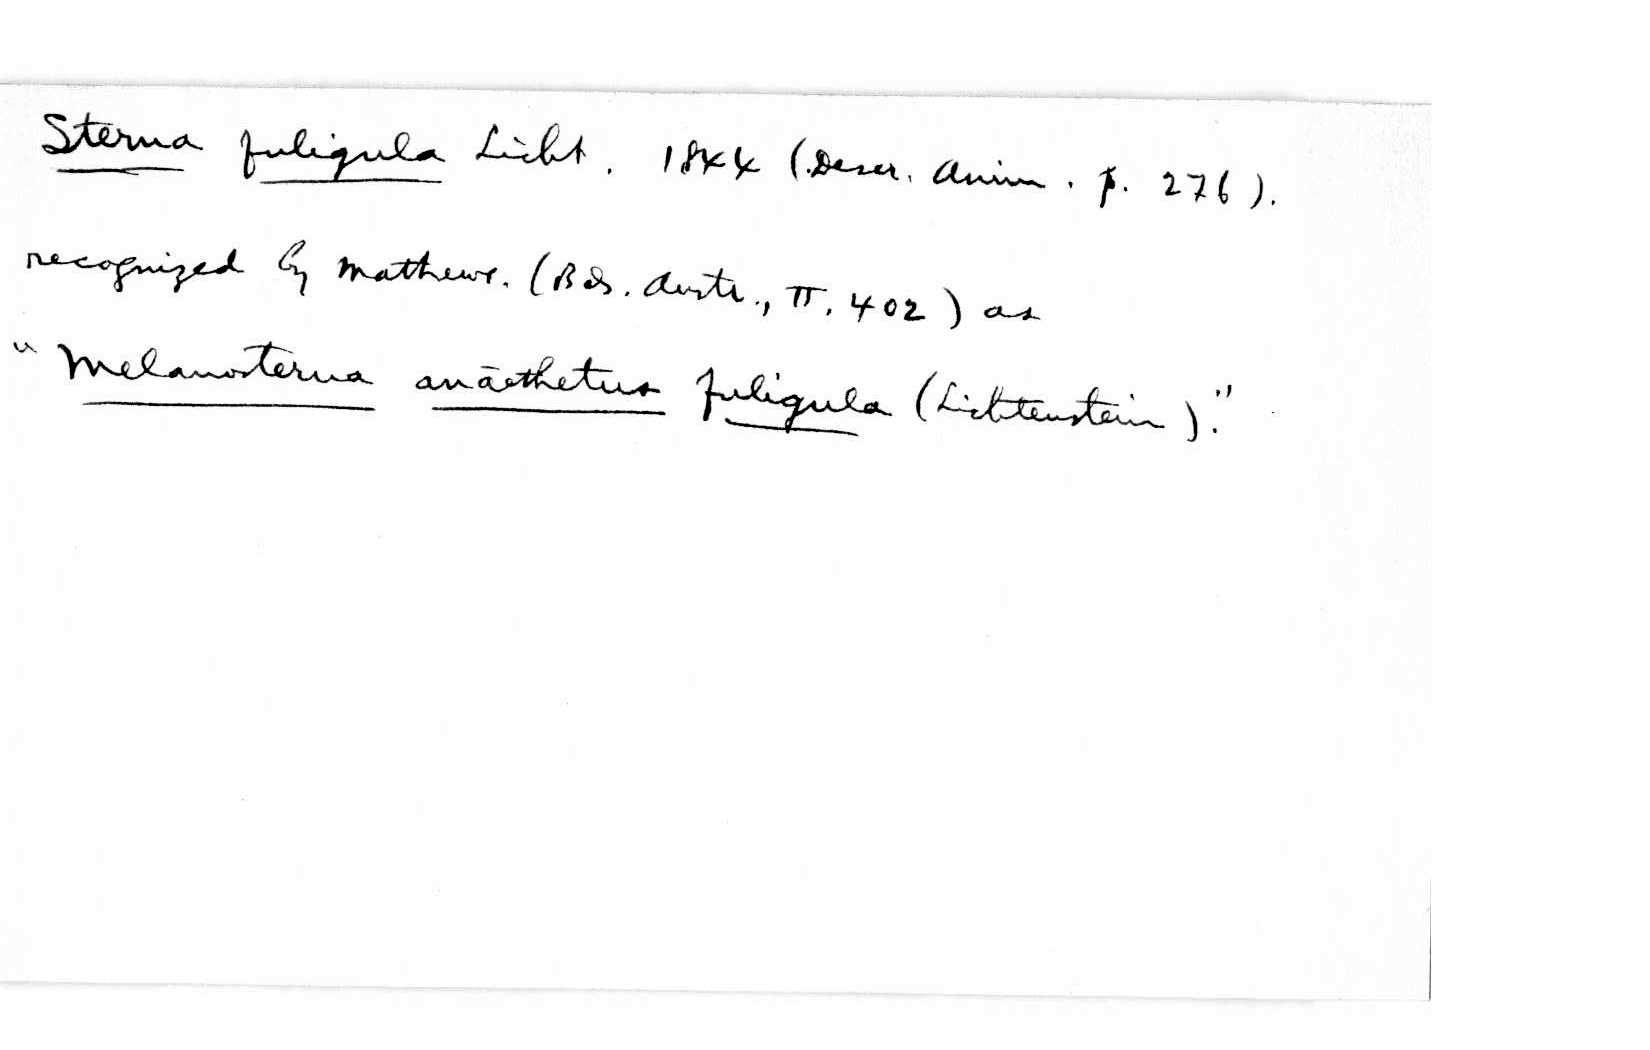 Sterna fuligula Licht. 1844 (Descr. Anim. p. 276).
recognized by Mathews. (Bds. Austr., II. 402) as
"Melanosterna anaethetus fuligula (Lichtenstein)."